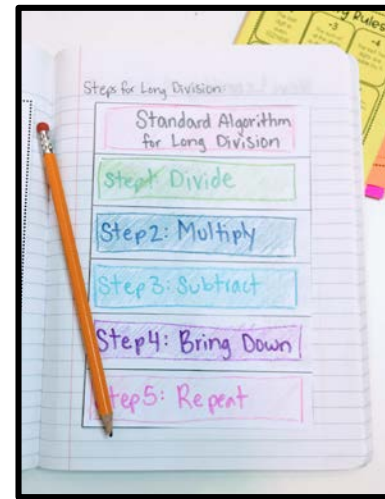 Steps for Long Division
Standard Algorithm
for Long Division
Step1: Divide
Step2: Multiply
Step3: Subtract
Step4: Bring Down
Step5: Repeat
Rules
-3
-4